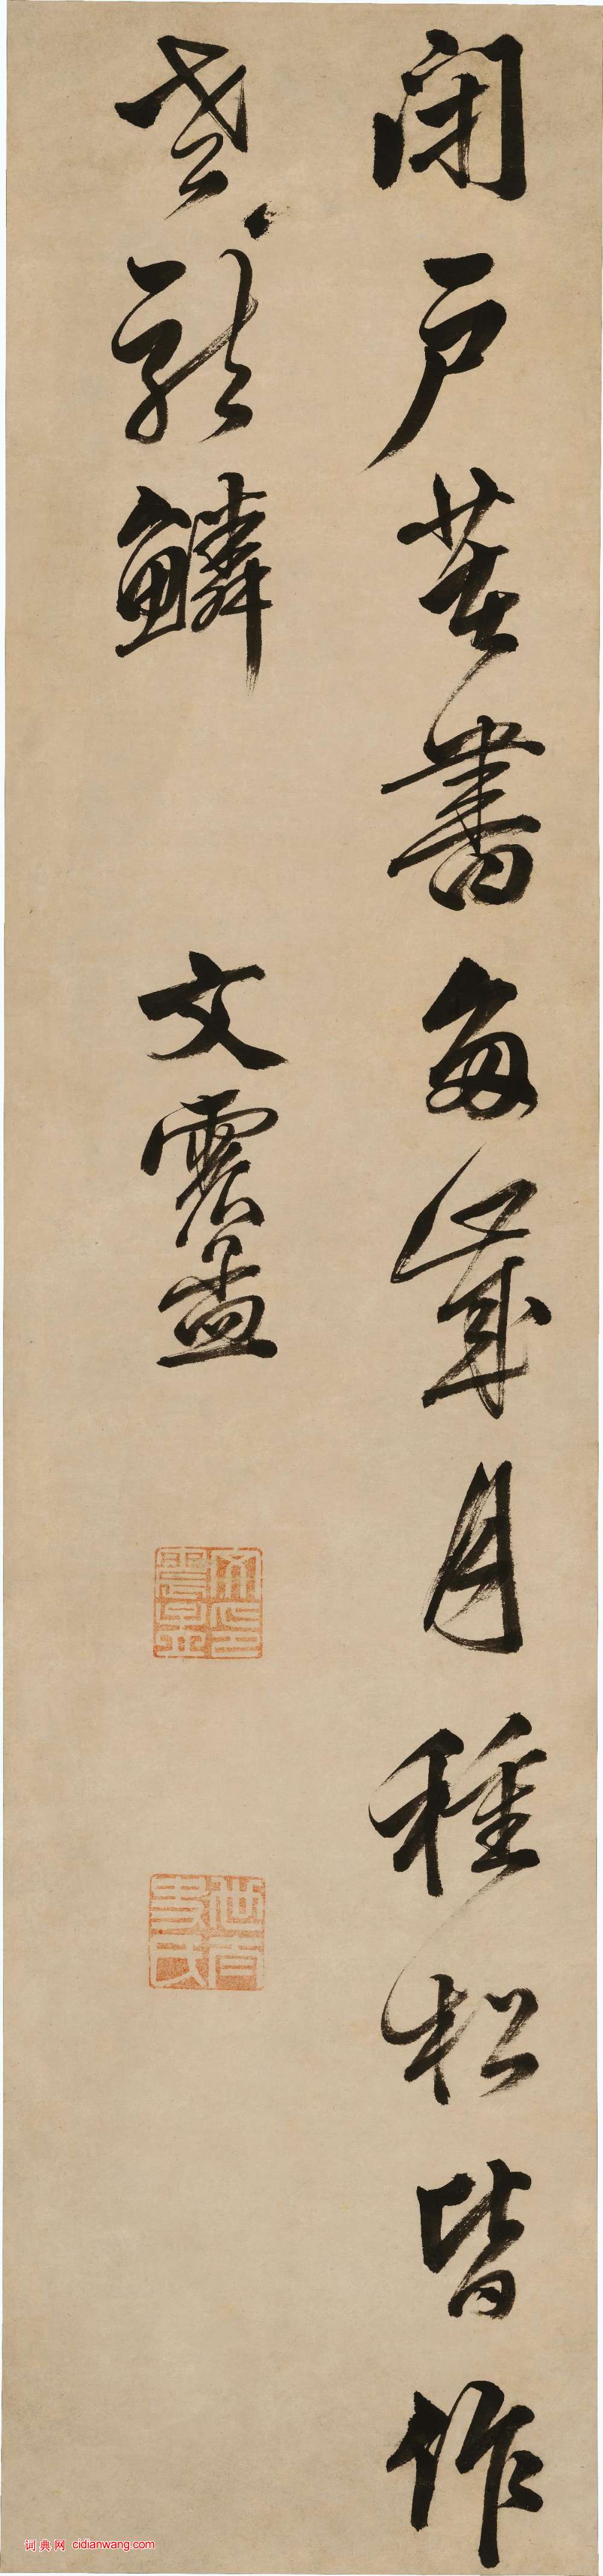 閉戶著書多歲月種松皆作
老龍鱗
文震孟
词典网 cidianwang.com